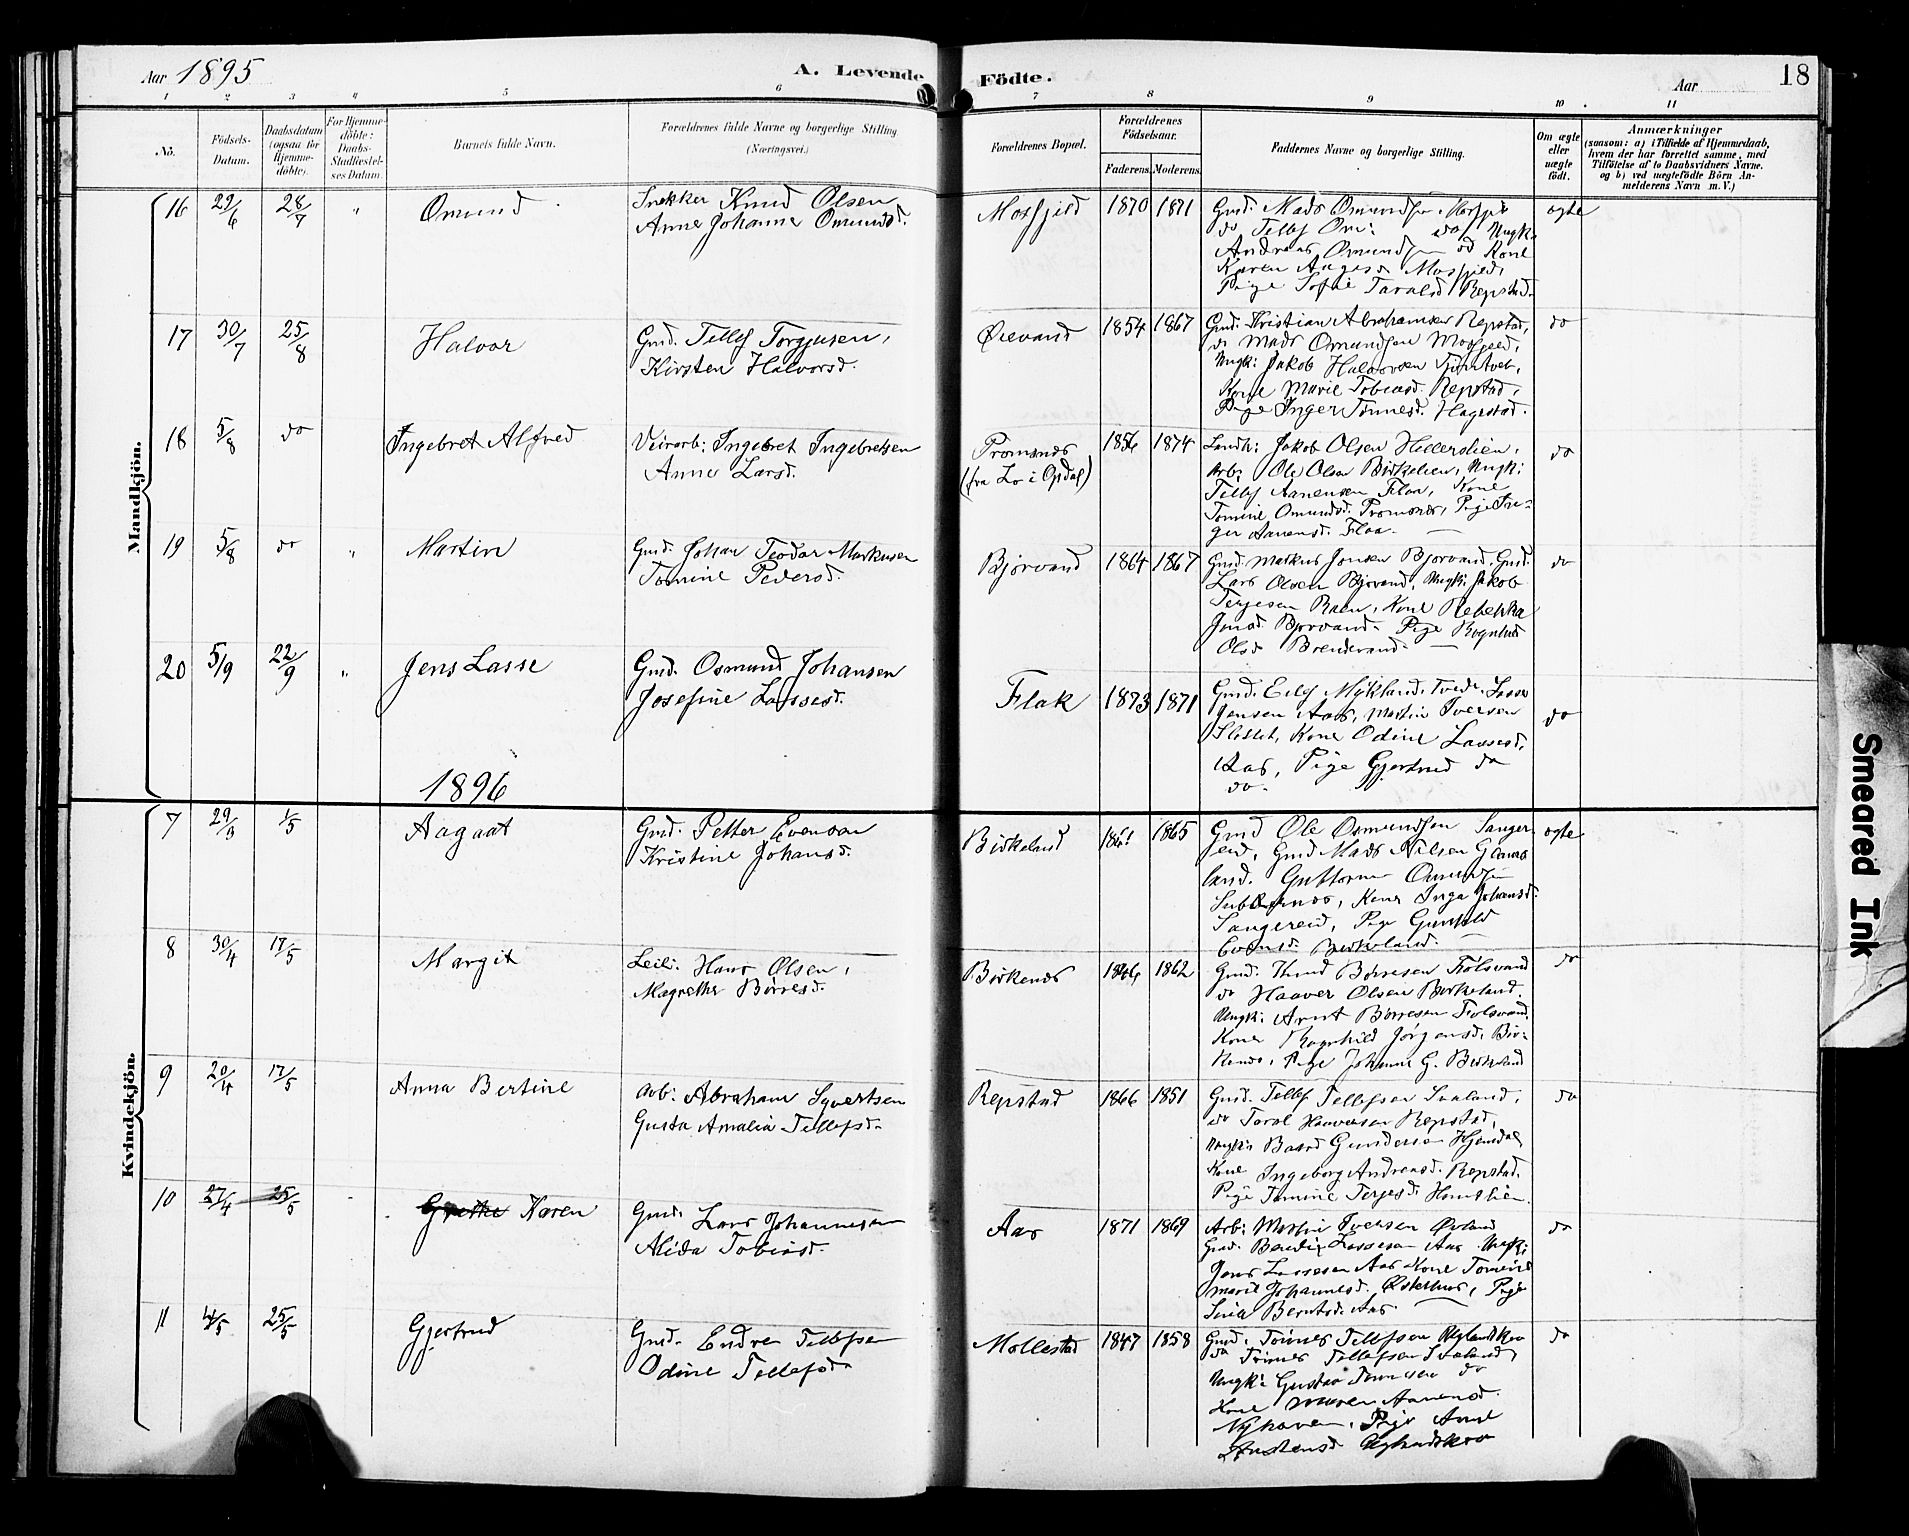 Aar 1895
A. Levende Födte.
Aar 18
1 2 3 4 5 6 7 8 9 10 11
No.
Födsels-Datum.
Daabsdatum (ogsaa for Hjemme-döbte).
For Hjemme-döbte: Daabs-Stadfæstel-ses Datum.
Barnets fulde Navn.
Forældrenes fulde Navne og borgerlige Stilling (Næringsvei.)
Forældrenes Bopæl.
Forældrenes Födselsaar.
Faderens. Moderens.
Faddernes Navne og borgerlige Stilling.
Om ægte eller uægte födt.
Anmærkninger
(saasom: a) i Tilfælde af Hjemmedaab,
hvem der har forrettet samme, med
Tilföielse af to Daabsvidners Navne,
og b) ved uægtefödte Börn An-
melderens Navn m. V.)
Mandkjön.
16 29/6 28/7 " Omund
Snekker Knud Olsen
Anne Johanne Omundsd.
Mosfjeld 1870 1871
Gmd. Mads Omundsen Mosfjeld
do Tellef Om: do, Ungk:
Andreas Omundsen do Kone
Karen Aagesd Mosfjeld,
Pige Sofie Taralsd Repstad.
ægte
17 30/7 25/8 Halvor
Gmd. Tellef Torgjusen,
Kirsten Halvorsd.
Øievand 1854 1867
Gmd. Kristian Abrahamsen Repstad,
do Mads Omundsen Mosfjeld,
Ungk: Jakob Halvorsen Tjomtvet,
Kone Marie Tobiasd. Repstad,
Pige Inger Tønnesd. Hagestad.
do
18 5/8 do Ingebret Alfred
Veiarb: Ingebret Ingebretsen
Anne Larsd.
Promenes
(fra Lo i Opdal)
1856 1874
Landh: Jakob Olsen Hillerslien,
Arb: Ole Olsen Birkelien, Ungk:
Tellef Aanensen Flaa, Kone
Tomine Omundsd. Promenes, Pige In-
ger Aanensd. Flaa.
do
19 5/8 do " Martin
Gmd. Johan Teodor Markusen
Tomine Pedersd.
Bjorvand 1864 1867
Gmd. Markus Jensen Bjorvand, Gmd.
Lars Olsen Bjorvand, Ungk: Jakob
Terjesen Raen, Kone Rebekka
Jensd. Bjorvand. Pige Rognhild
Olsd Brendevand.
do
20 5/9 22/9 " Jens Lasse
Gmd. Osmund Johansen
Josefine Lassesd.
Flak 1873 1871
Gmd. Eilef Mykland, Tvede. Lasse
Jensen Aas, Martin Iversen
Slettet, Kone Odine Lassesd.
Aas, Pige Gjertrud do
do.
do
1896
Kvindekjön.
7 29/3 1/5 Aagaat
Gmd. Petter Evensen
Kristine Johansd.
Birkeland 1861 1865
Gmd Ole Osmundsen Sanger-
eid, Gmd Mads Nilsen Glams
land. Guttorm Omundsen
Kone Inga Johansd.
Sangereid, Pige Gunhild
Evensd. Birkeland.
ægte
8 30/4 17/5 Margit
Leil: Hans Olsen,
Magrethe Børresd.
Birkenes 1846 1862
Gmd. Knud Børresen Tiolsvand
do Haaver Olsen Birkeland.
Ungk: Arnt Børresen Tiolsvand.
Kone Ragnhild Jørgensd. Bir-
kenes, Pige Johanne G. Birkeland
do
9 20/4 17/5 Anna Bertine
Arb: Abraham Syvertsen
Gusta Amalia Tellefsd.
Repstad 1866 1851
Gmd. Tellef Tellefsen Svaland,
do Taral Haaversen Repstad,
Ungk: Baard Gundersen Hjemdal
Kone Ingeborg Andreasd. Repstad.
Pige Tomine Terjesd. Homslien.
do
10 27/4 25/5 Grethe Karen
Gmd: Lars Johannesen
Alida Tobiasd.
Aas 1871 1869
Arb: Martin Iversen Øvland
Gmd. Bendix Lassesen Aas Ungk:
Jens Lassesen Aas Kone Tomine
Marie Johannesd. Østerhus, Pige
Lina Berntsd. Aas.
do
11 4/5 25/5 Gjertrud
Gmd. Endre Tellefsen
Odine Tellefsd.
Mollestad 1847 1858
Gmd. Tønnes Tellefsen Uglandskra
do Tønnes Tellefsen Svaland,
Ungk: Gustav Tønnesen do
Kone Maren Aanensd.
Nyhaven, Pige Anne
Uglandskra
do
Smeared Ink